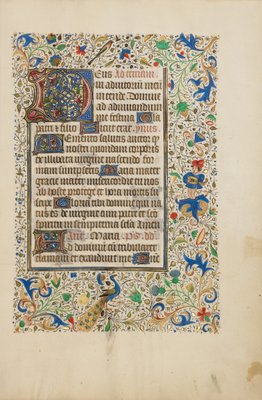 Deus Ad terciam
in adiutorium meū
intende Domine
ad adiuuandum
me festina Gloria
patri et filio Sicut erat ymus
Memento salutis auctor qͥ
nostri quondam corporis
ex illibata uirgine nascendo for
mam sumpseris Maria mater
gracie mater misericordie tu nos
ab hoste protege et hora mortis sus
cipe Gloria tibi domine qui na
tus es de uirgine cum patre et sc̄o
spiritu in sempiterna secula Amen
Maria ps dd
Ad dominū cū tribularer
clamaui et exaudiuit me